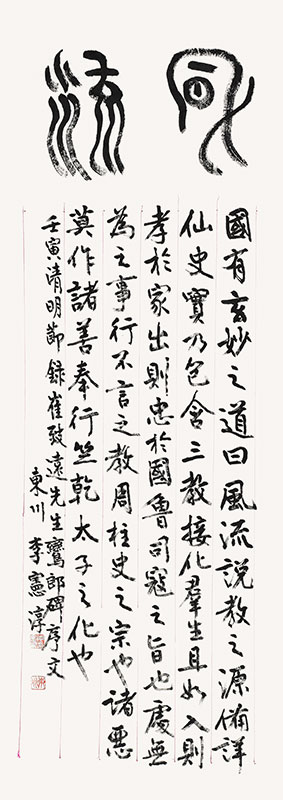 風流
國有玄妙之道曰風流說教之源備詳
仙史實乃包含三教接化羣生且如入則
孝於家出則忠於國魯司寇之旨也處無
為之事行不言之教周柱史之宗也諸惡
莫作諸善奉行竺乾太子之化也
壬寅清明節錄崔致遠先生鸞郎碑序文
東川 李憲淳